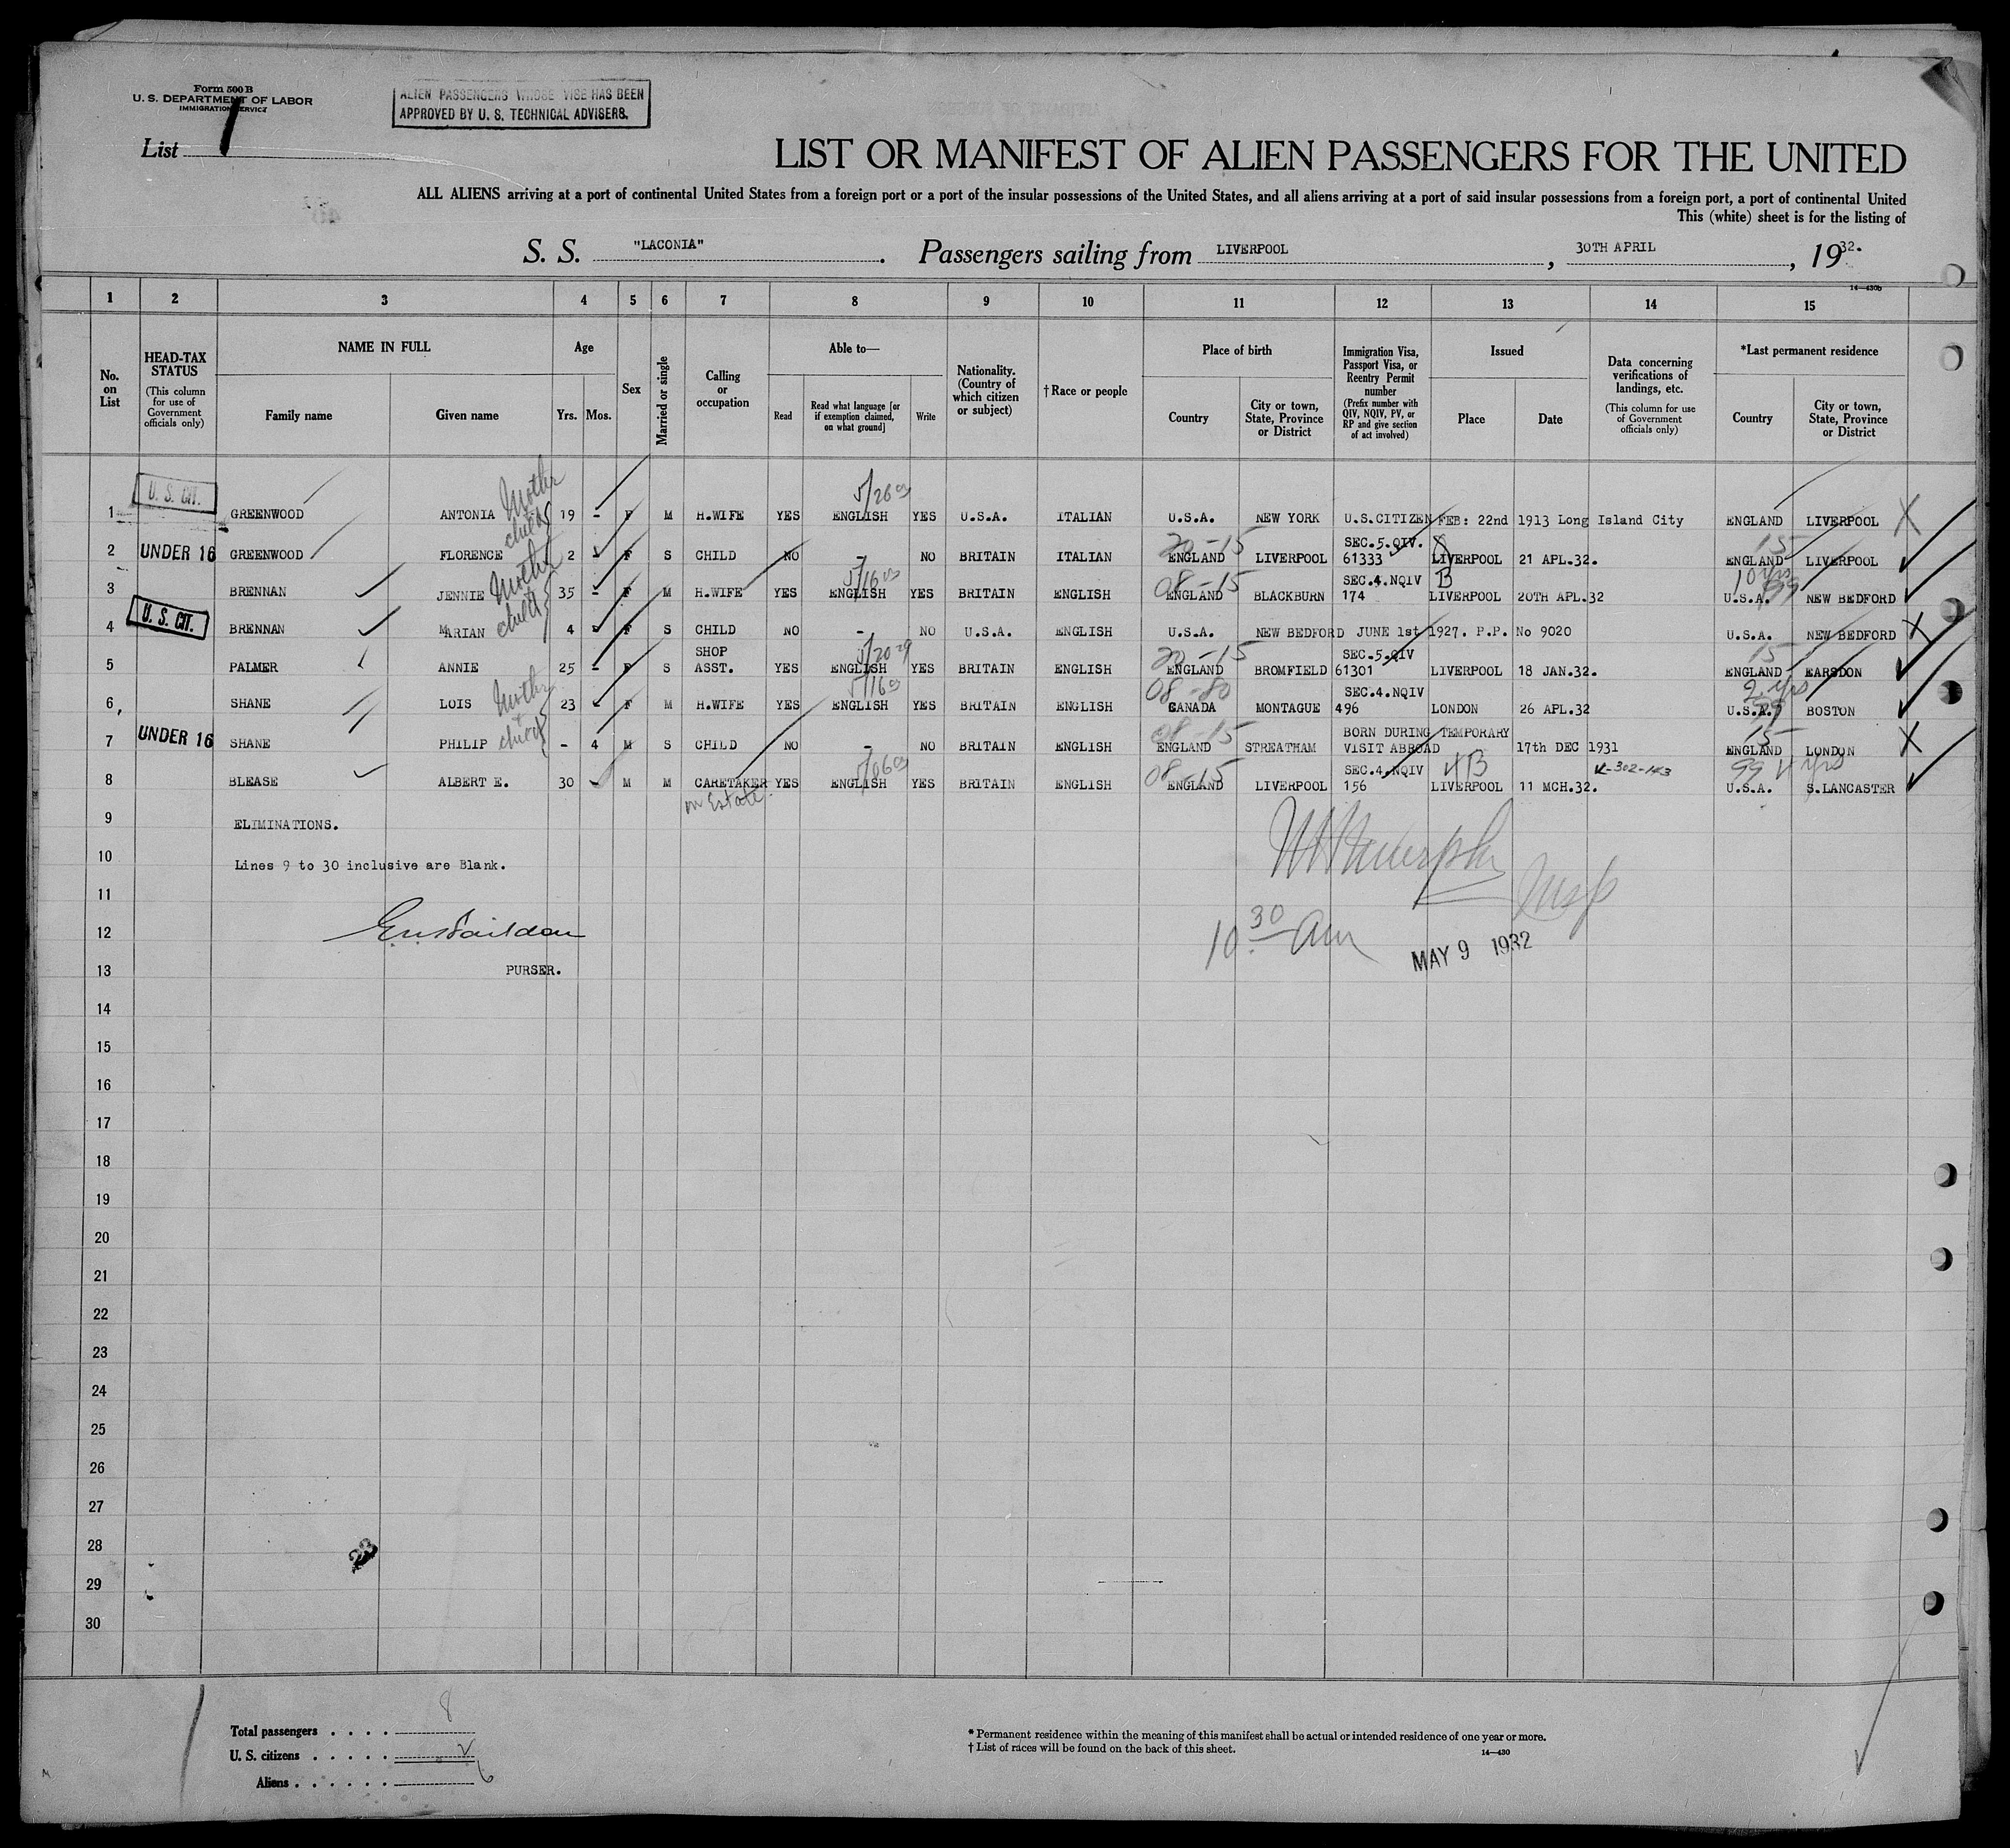 Form 500 B
U. S. DEPARTMENT OF LABOR
IMMIGRATION SERVICE
ALIEN PASSENGERS WHOSE VISE HAS BEEN
APPROVED BY U. S. TECHNICAL ADVISERS.
List 1
LIST OR MANIFEST OF ALIEN PASSENGERS FOR THE UNITED
ALL ALIENS arriving at a port of continental United States from a foreign port or a port of the insular possessions of the United States, and all aliens arriving at a port of said insular possessions from a foreign port, a port of continental United
This (white) sheet is for the listing of
S. S. "LACONIA". Passengers sailing from LIVERPOOL, 30TH APRIL, 1932.
14—430b
1 2 3 4 5 6 7 8 9 10 11 12 13 14 15
No. on List
HEAD-TAX STATUS (This column for use of Government officials only)
NAME IN FULL Family name Given name
Age Yrs. Mos.
Sex
Married or single
Calling or occupation
Able to— Read Read what language [or if exemption claimed, on what ground] Write
Nationality. (Country of which citizen or subject)
† Race or people
Place of birth Country City or town, State, Province or District
Immigration Visa, Passport Visa, or Reentry Permit number (Prefix number with QIV, NQIV, PV, or RP and give section of act involved)
Issued Place Date
Data concerning verifications of landings, etc. (This column for use of Government officials only)
*Last permanent residence Country City or town, State, Province or District
U. S. CIT. Mother 5/26
1 GREENWOOD ANTONIA 19 - F M H.WIFE YES ENGLISH YES U.S.A. ITALIAN U.S.A. NEW YORK U.S.CITIZEN FEB: 22nd 1913 Long Island City ENGLAND LIVERPOOL X
child 20-15 SEC.5.QIV. 15
2 UNDER 16 GREENWOOD FLORENCE 2 F S CHILD NO - NO BRITAIN ITALIAN ENGLAND LIVERPOOL 61333 LIVERPOOL 21 APL.32. ENGLAND LIVERPOOL
Mother 5/16 08-15 SEC.4.NQIV B 10 yrs 99
3 BRENNAN JENNIE 35 - F M H.WIFE YES ENGLISH YES BRITAIN ENGLISH ENGLAND BLACKBURN 174 LIVERPOOL 20TH APL.32 U.S.A. NEW BEDFORD
U. S. CIT. child
4 BRENNAN MARIAN 4 F S CHILD NO - NO U.S.A. ENGLISH U.S.A. NEW BEDFORD JUNE 1st 1927. P.P. No 9020 U.S.A. NEW BEDFORD X
SHOP 5/20 29 20-15 SEC.5.QIV 15
5 PALMER ANNIE 25 - F S ASST. YES ENGLISH YES BRITAIN ENGLISH ENGLAND BROMFIELD 61301 LIVERPOOL 18 JAN.32. ENGLAND EARSDON
Mother 5/16 08-80 SEC.4.NQIV 2 yrs 99
6 SHANE LOIS 23 F M H.WIFE YES ENGLISH YES BRITAIN ENGLISH CANADA MONTAGUE 496 LONDON 26 APL.32 U.S.A. BOSTON
child 08-15 BORN DURING TEMPORARY 15
7 UNDER 16 SHANE PHILIP - 4 M S CHILD NO - NO BRITAIN ENGLISH ENGLAND STREATHAM VISIT ABROAD 17th DEC 1931 ENGLAND LONDON X
08-15 SEC.4.NQIV 4B K-302-143 99 4 yrs
8 BLEASE ALBERT E. 30 M M CARETAKER YES ENGLISH YES BRITAIN ENGLISH ENGLAND LIVERPOOL 156 LIVERPOOL 11 MCH.32. U.S.A. S.LANCASTER
on Estate.
9 ELIMINATIONS.
10 Lines 9 to 30 inclusive are Blank.
11
12
10 30 am
MAY 9 1932
13 PURSER.
14
15
16
17
18
19
20
21
22
23
24
25
26
27
28
23
29
30
Total passengers . . . . 8
U. S. citizens . . . . . 2
Aliens . . . . . . 6
* Permanent residence within the meaning of this manifest shall be actual or intended residence of one year or more.
† List of races will be found on the back of this sheet.
14—430